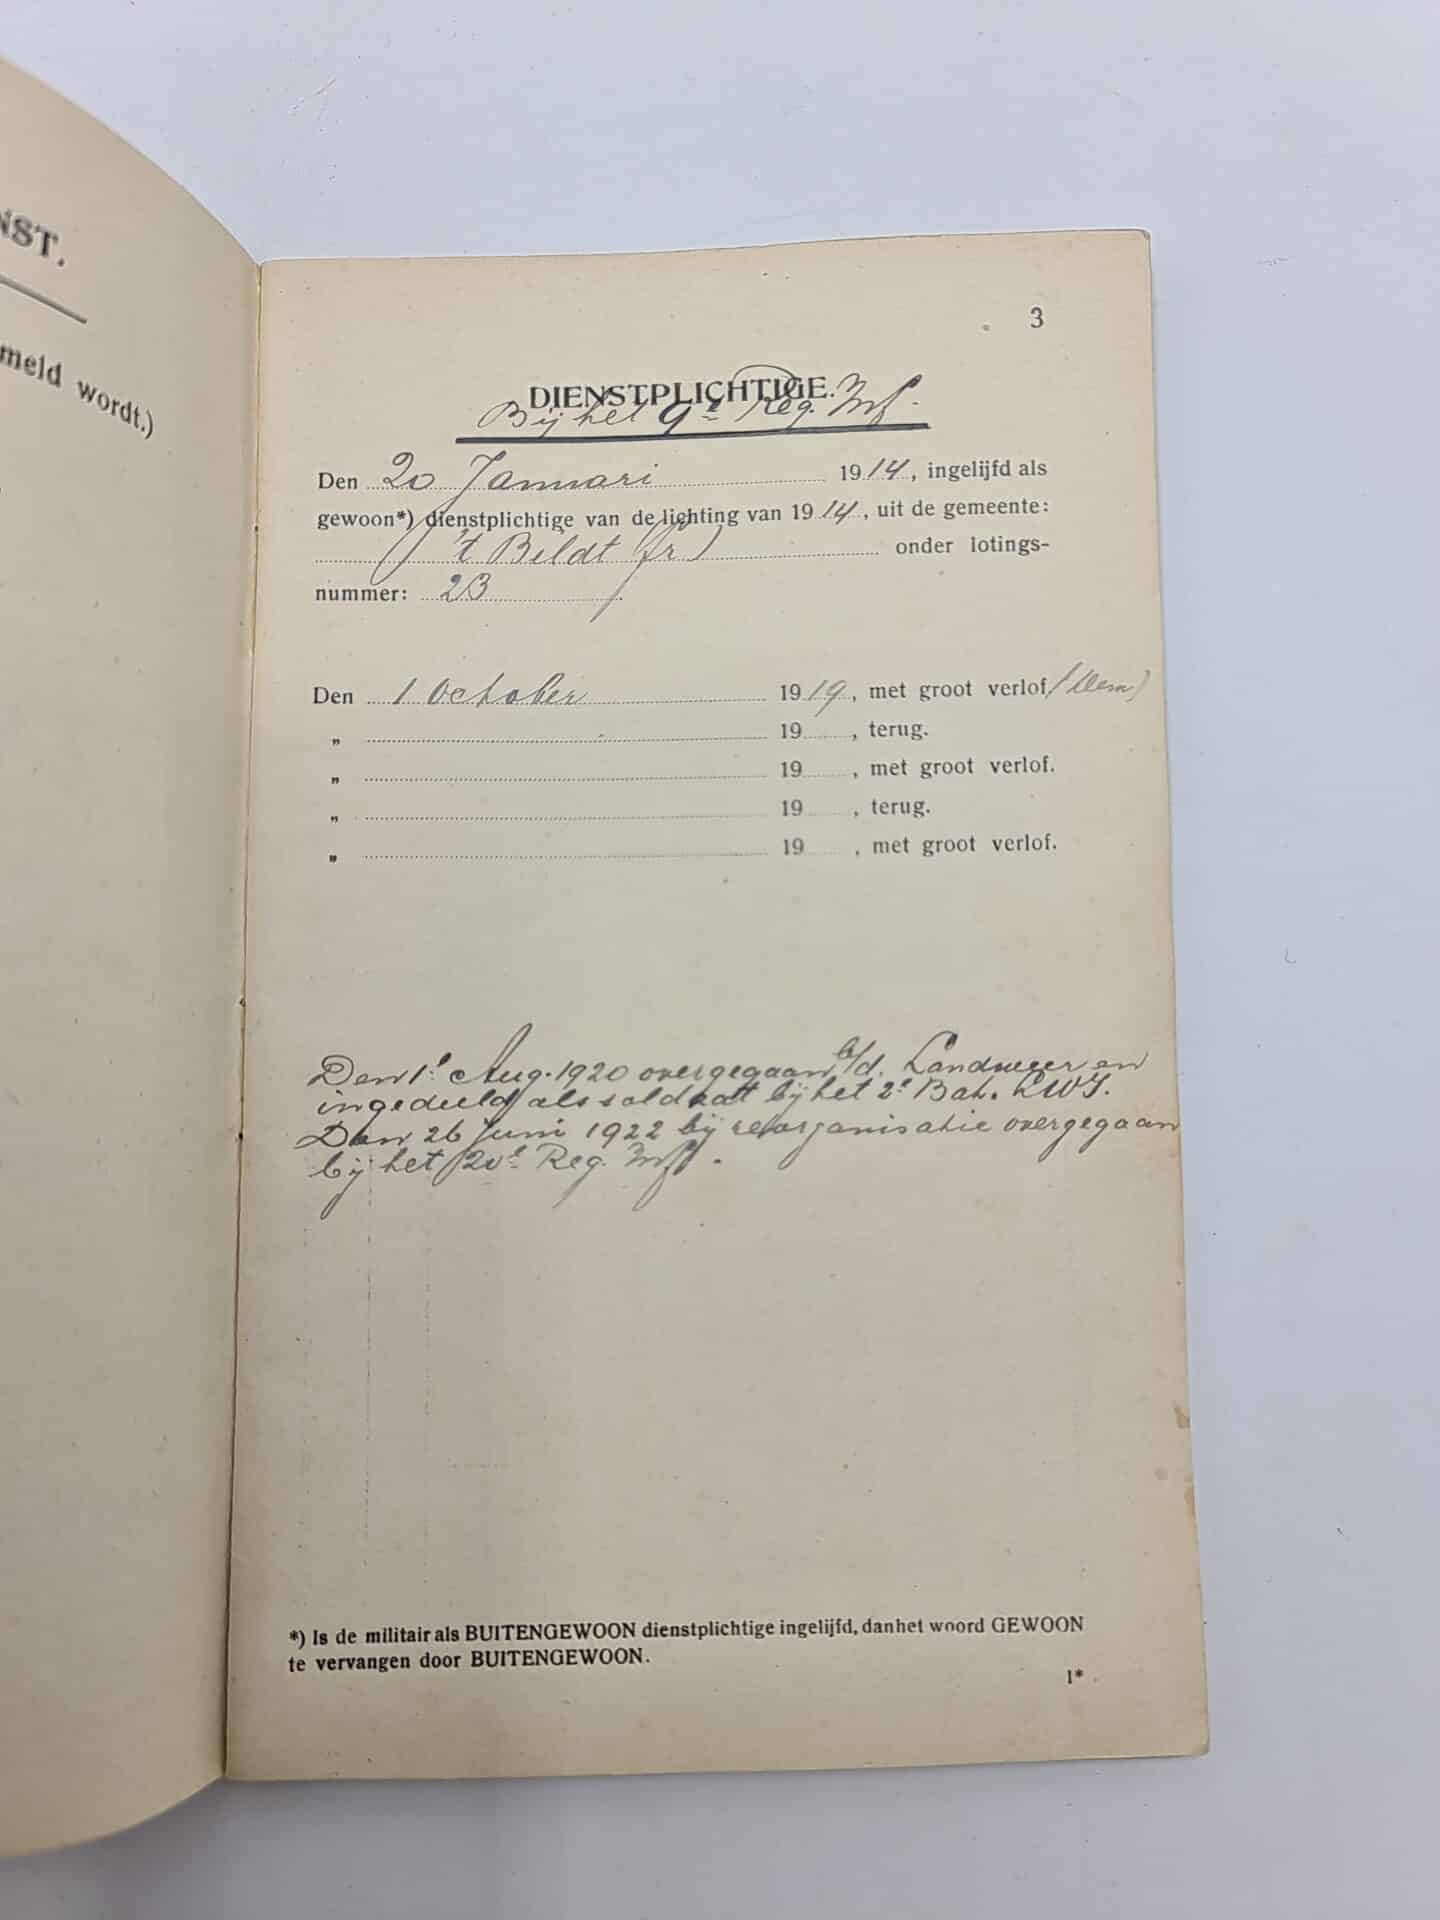 NST.
meld wordt.)
3
DIENSTPLICHTIGE.
Bij het 9e Reg. Inf.
Den 20 Januari 1914, ingelijfd als
gewoon*) dienstplichtige van de lichting van 1914, uit de gemeente:
't Bildt (fr) onder lotings-
nummer: 23
Den 1 October 1919, met groot verlof (Dem)
„ 19 , terug.
„ 19 , met groot verlof.
„ 19 , terug.
„ 19 , met groot verlof.
Den 1e Aug. 1920 overgegaan b/d. Landweer en
ingedeeld als soldaat bij het 2e Bat. LWI.
Den 26 Juni 1922 bij reorganisatie overgegaan
bij het 20e Reg. Inf.
*) Is de militair als BUITENGEWOON dienstplichtige ingelijfd, dan het woord GEWOON
te vervangen door BUITENGEWOON.
1*